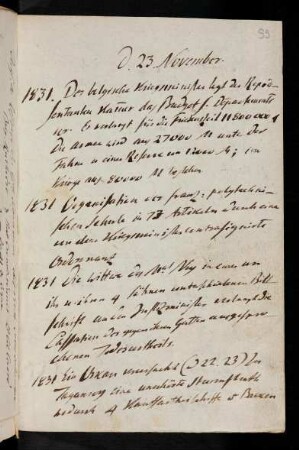 99
d. 23 November.
1831. Der belgische Kriegsminister legt der Reprä-
sentanten Kammer das Budget s. Departements
vor. Er verlangt für die
die Armee wird aus 27000 M unter der
Fahne u einer Reserve von M; im
Kriege aus 80000 M bestehen
1831 Organisation der franz: polytechni-
schen Schule in 73 Artikeln durch eine
von dem Kriegsminister contrasignirte
Ordonnanz
1831 Die Wittwe des Mar. Ney in einer von
ihr u ihren 4 Söhnen unterschriebenen Bitt-
schrift an den Justizminister verlangt die
Cassation des gegen ihren Gatten ausgespro-
chenen Todesurtheils.
1831 Ein Orkan verursacht (22. 23) in
Taganrog eine unerhörte Sturmfluth
wodurch 4 Kauffartheischiffe 5 Barken